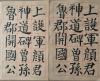 上護軍顏君
神道碑曾孫
魯郡開國公
上護軍顏君
神道碑曾孫
魯郡開國公